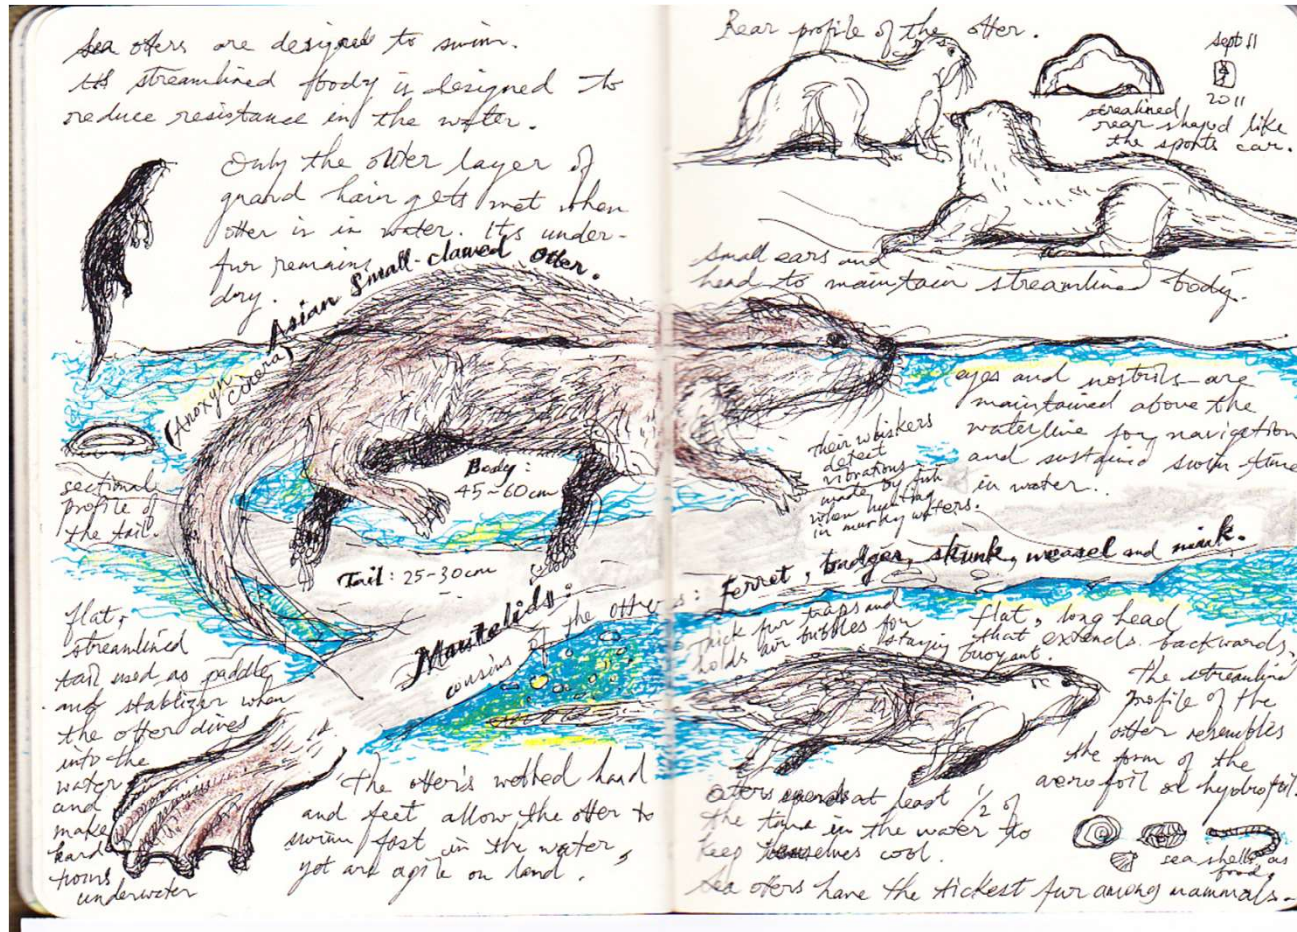 Sea otters are designed to swim.
Its streamlined body is designed to
reduce resistance in the water.
Only the outer layer of
guard hair gets wet when
otter is in water. Its under-
fur remains
dry.
Asian Small-clawed Otter.
(Anoxyn
Cinerea)
sectional
profile of
the tail.
Body:
45-60cm
Tail: 25-30cm
flat,
streamlined
tail used as paddle
and stablizer when
the otter dives
into the
water
and
make
hard
turns
underwater
The otter's webbed hand
and feet allow the otter to
swim fast in the water,
yet are agile on land.
Mustelids:
cousins of the otters: Ferret, badger, skunk, weasel and mink.
Rear profile of the otter.
Sept 11
2011
streamlined
rear shaped like
the sports car.
Small ears and
head to maintain streamlined body.
eyes and nostrils are
maintained above the
waterline for navigation
and sustained swim time
in water..
their whiskers
detect
vibrations
made by fish
when hunting
in murky waters.
Thick fur traps and
holds air bubbles for
staying buoyant.
flat, long head
that extends backwards.
The streamline
profile of the
otter resembles
the form of the
aerofoil or hydrofoil.
Otters spends at least 1/2 of
the time in the water to
keep themselves cool.
sea shells as
food.
Sea otters have the tickest fur among mammals.